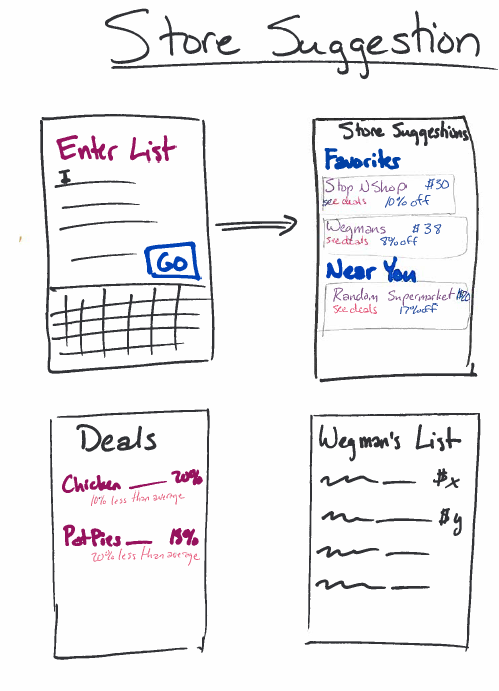 Store Suggestion
Enter List
GO
Store Suggestions
Favorites
Stop N Shop $30
see deals 10% off
Wegmans $38
see deals 8% off
Near You
Random Supermarket
see deals 17% off
Deals
Chicken 20%
10% less than average
Pot Pies 18%
20% less than average
Wegman's List
$x
$y